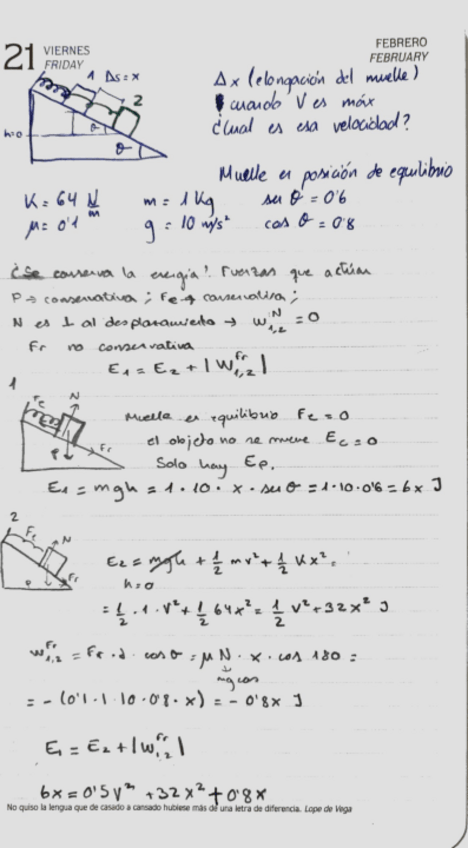 21 VIERNES
FRIDAY
FEBRERO
FEBRUARY
1 Δs = x
2
h=0
θ
θ
Δx (elongación del muelle)
cuando V es máx
¿Cual es esa velocidad?
Muelle en posición de equilibrio
K = 64 N/m m = 1 Kg sen θ = 0'6
μ = 0'1 g = 10 m/s² cos θ = 0'8
¿Se conserva la energía? Fuerzas que actúan
P → conservativa ; Fe → conservativa ;
N es ⊥ al desplazamiento → W₁,₂ᴺ = 0
Fr no conservativa
E₁ = E₂ + |W₁,₂ᶠʳ|
1
Fe N
P Fr
Muelle en equilibrio Fe = 0
el objeto no se mueve Ec = 0
Solo hay Ep.
E₁ = mgh = 1 · 10 · x · sen θ = 1 · 10 · 0'6 = 6x J
2
Fe N
P Fr
E₂ = mgh + 1/2 mv² + 1/2 Kx² =
h=0
= 1/2 · 1 · V² + 1/2 64x² = 1/2 V² + 32x² J
W₁,₂ᶠʳ = Fr · d · cos θ = μ N · x · cos 180 =
↓
mg cos
= - (0'1 · 1 · 10 · 0'8 · x) = - 0'8x J
E₁ = E₂ + |W₁,₂ᶠʳ|
6x = 0'5V² + 32x² + 0'8x
No quiso la lengua que de casado a cansado hubiese más de una letra de diferencia. Lope de Vega